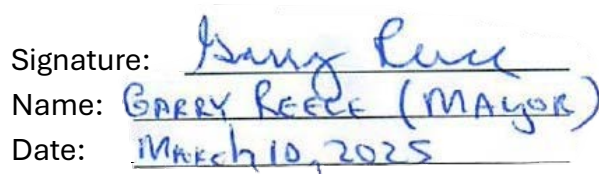 Signature: Garry Reece
Name: GARRY REECE (MAYOR)
Date: March 10, 2025